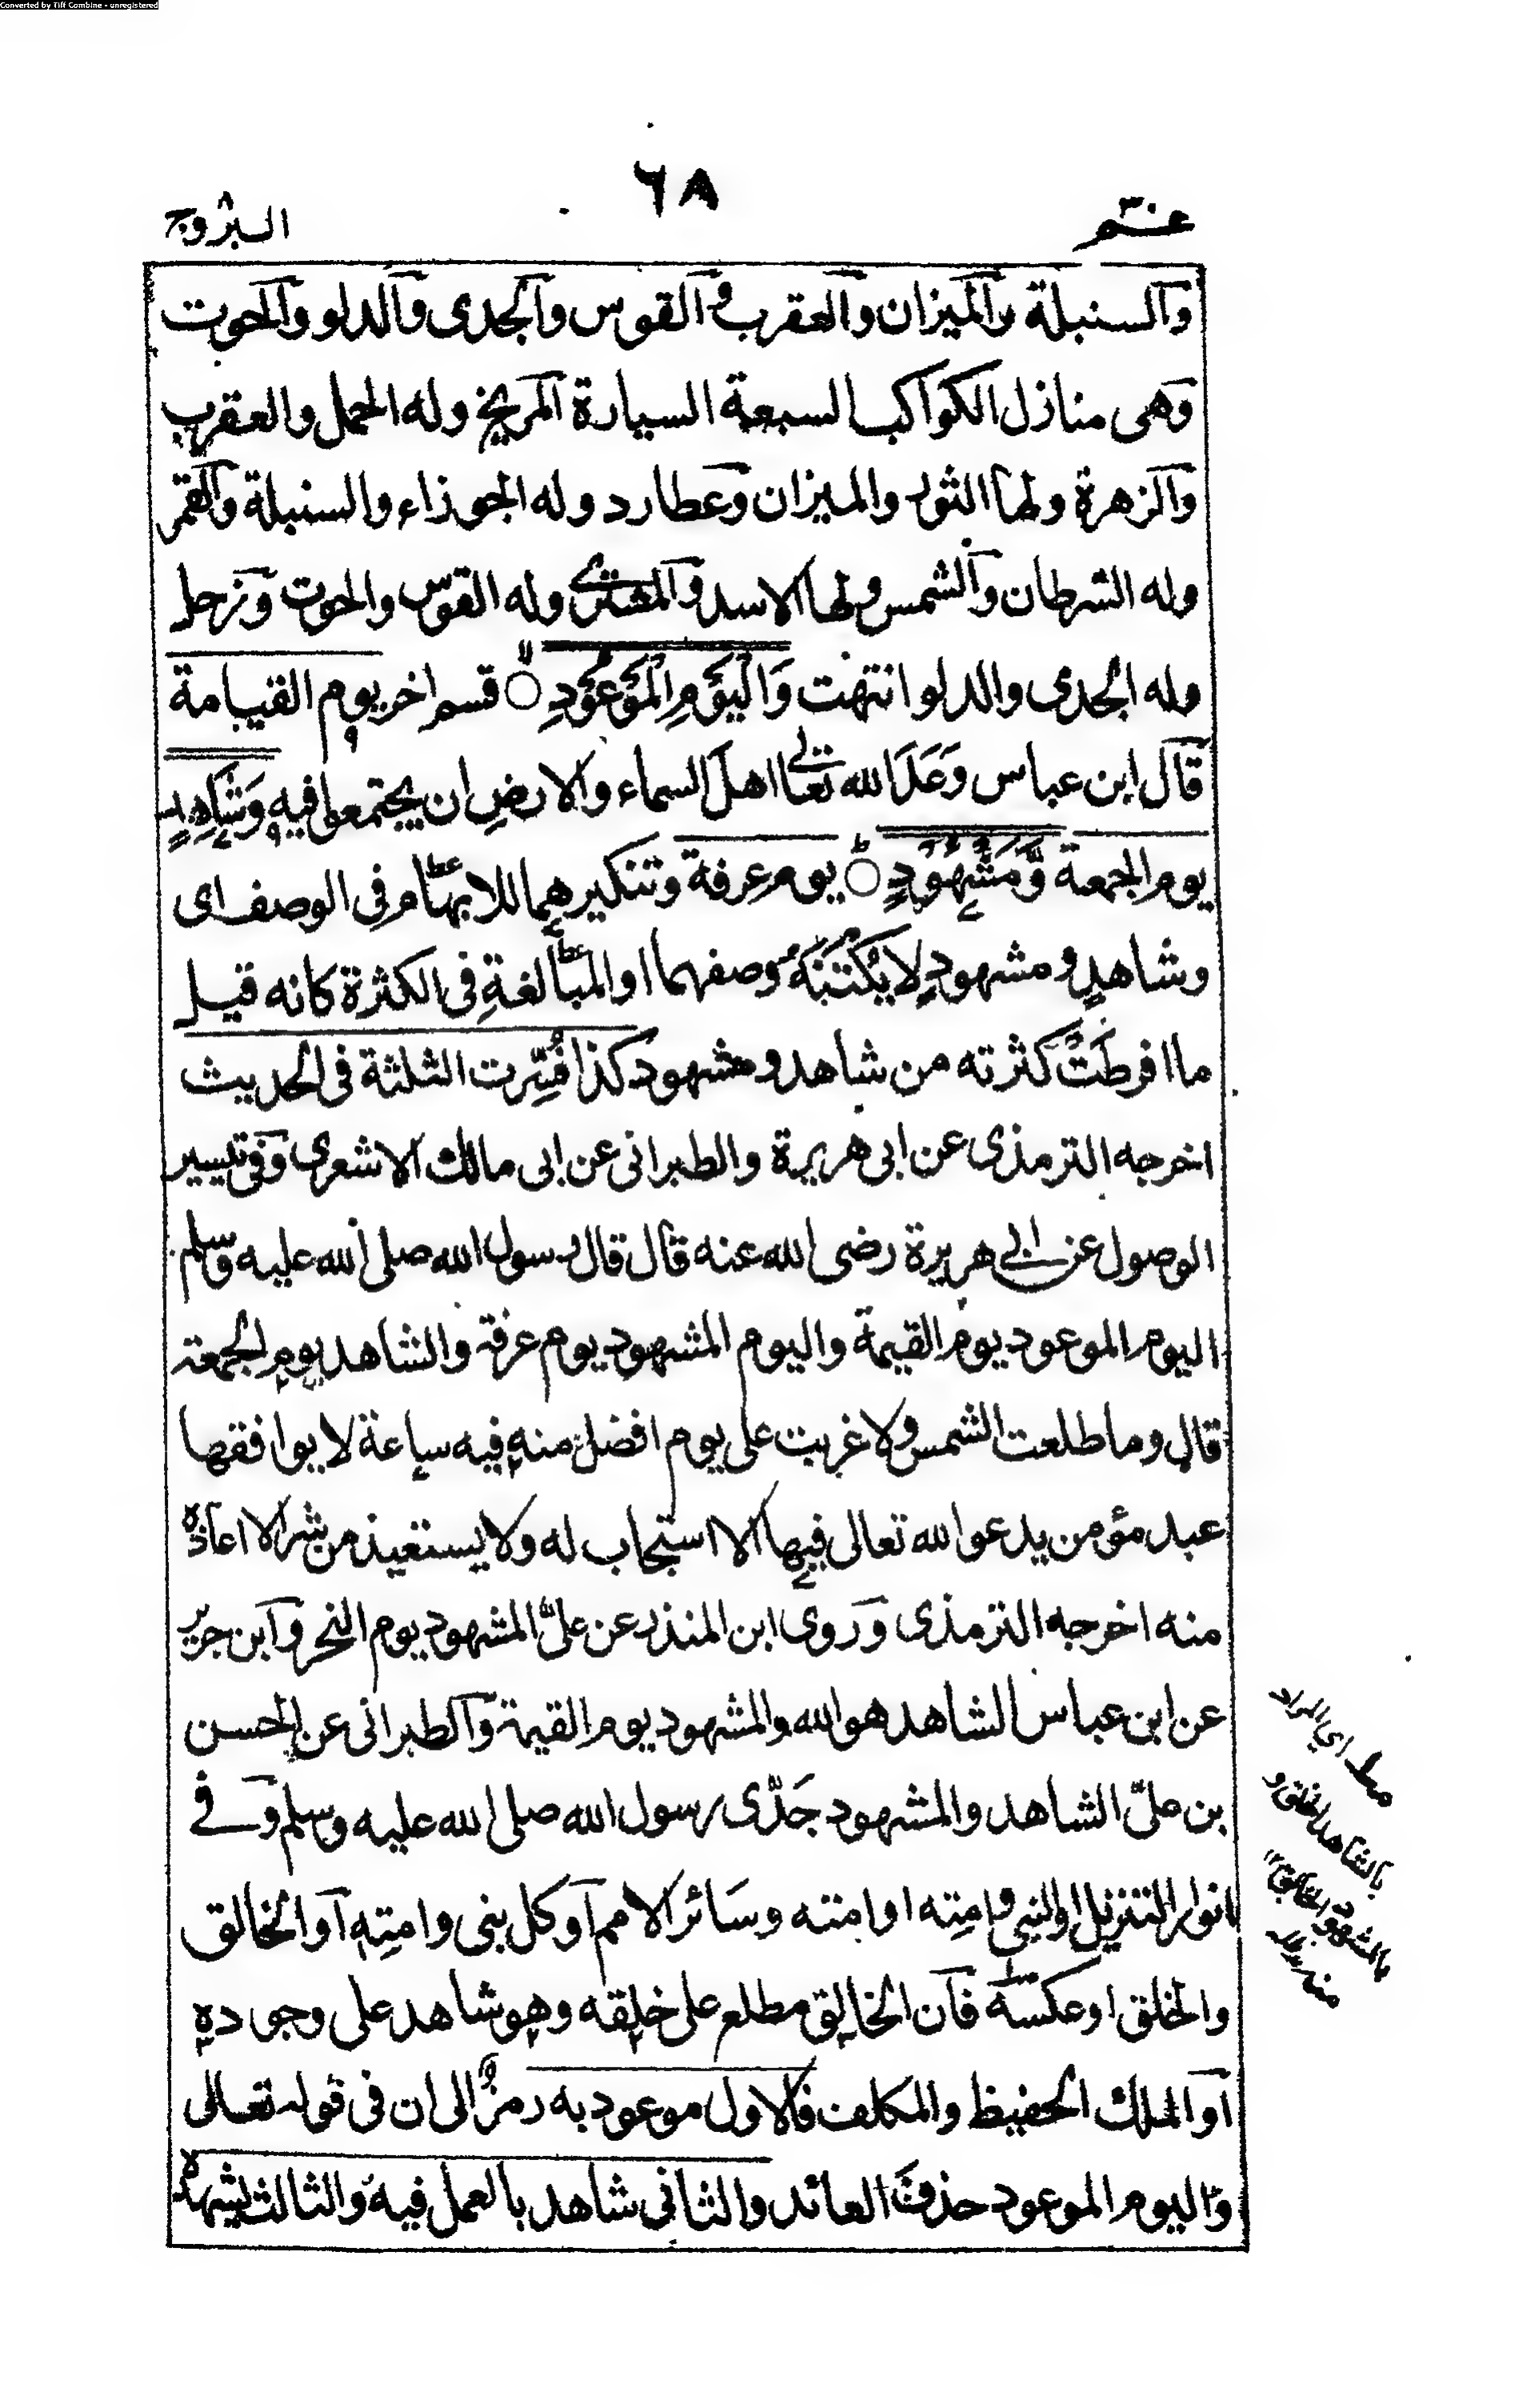 Converted by Tiff Combine - unregistered
٦٨
عم ٣٠
البروج
والسنبلة والميزان والعقرب والقوس والجدى والدلو والحوت
وهى منازل الكواكب السبعة السيارة المريخ وله الحمل والعقرب
والزهرة ولها الثور والميزان وعطارد وله الجوذاء والسنبلة والقمر
وله السرطان والشمس ولها الاسد والمشترى وله القوس والحوت وزحل
وله الجدى والدلو انتهت وَالْيَوْمِ الْمَوْعُوْدِ ○ قسم اخر يوم القيامة
قال ابن عباس وَعَدَ الله تعالى اهل السماء والارض ان يجتمعوا فيه وَشَاهِدٍ
يوم الجمعة وَّمَشْهُوْدٍ ○ يوم عرفة وتنكيرهما للابهام فى الوصف اى
وشاهدٍ ومشهودٍ لا يُكْتَنَهُ وصفهما او المبالغة فى الكثرة كانه قيل
ما افرطتْ كثرته من شاهد ومشهود كذا فُسِّرت الثلثة فى الحديث
اخرجه الترمذى عن ابى هريرة والطبرانى عن ابى مالك الاشعرى وفى تيسير
الوصول عن ابى هريرة رضى الله عنه قال قال رسول الله صلى الله عليه وسلم
اليوم الموعود يوم القيمة واليوم المشهود يوم عرفة والشاهد يوم الجمعة
قال وما طلعت الشمس ولا غربت على يوم افضل منه فيه ساعة لا يوافقها
عبد مؤمن يدعو الله تعالى فيها الا استجاب له ولا يستعيذ من شر الا اعاذه
منه اخرجه الترمذى وروى ابن المنذر عن علىّ المشهود يوم النحر وابن جرير
عن ابن عباس الشاهد هو الله والمشهود يوم القيمة والطبرانى عن الحسن
بن علىّ الشاهد والمشهود جَدّى رسول الله صلى الله عليه وسلم وفى
انوار التنزيل او النبى وامته او امته وسائر الامم او كل نبى وامته او الخالق
والخلق او عكسه فان الخالق مطلع على خلقه وهو شاهد على وجوده
او الملك الحفيظ والمكلف فالاول موعود به رمزٌ الى ان فى قوله تعالى
واليوم الموعود حذفَ العائد والثانى شاهد بالعمل فيه والثالث يشهده
اي المراد
بالشاهد الخلق و
بالمشهود الخالق ١٢
منه